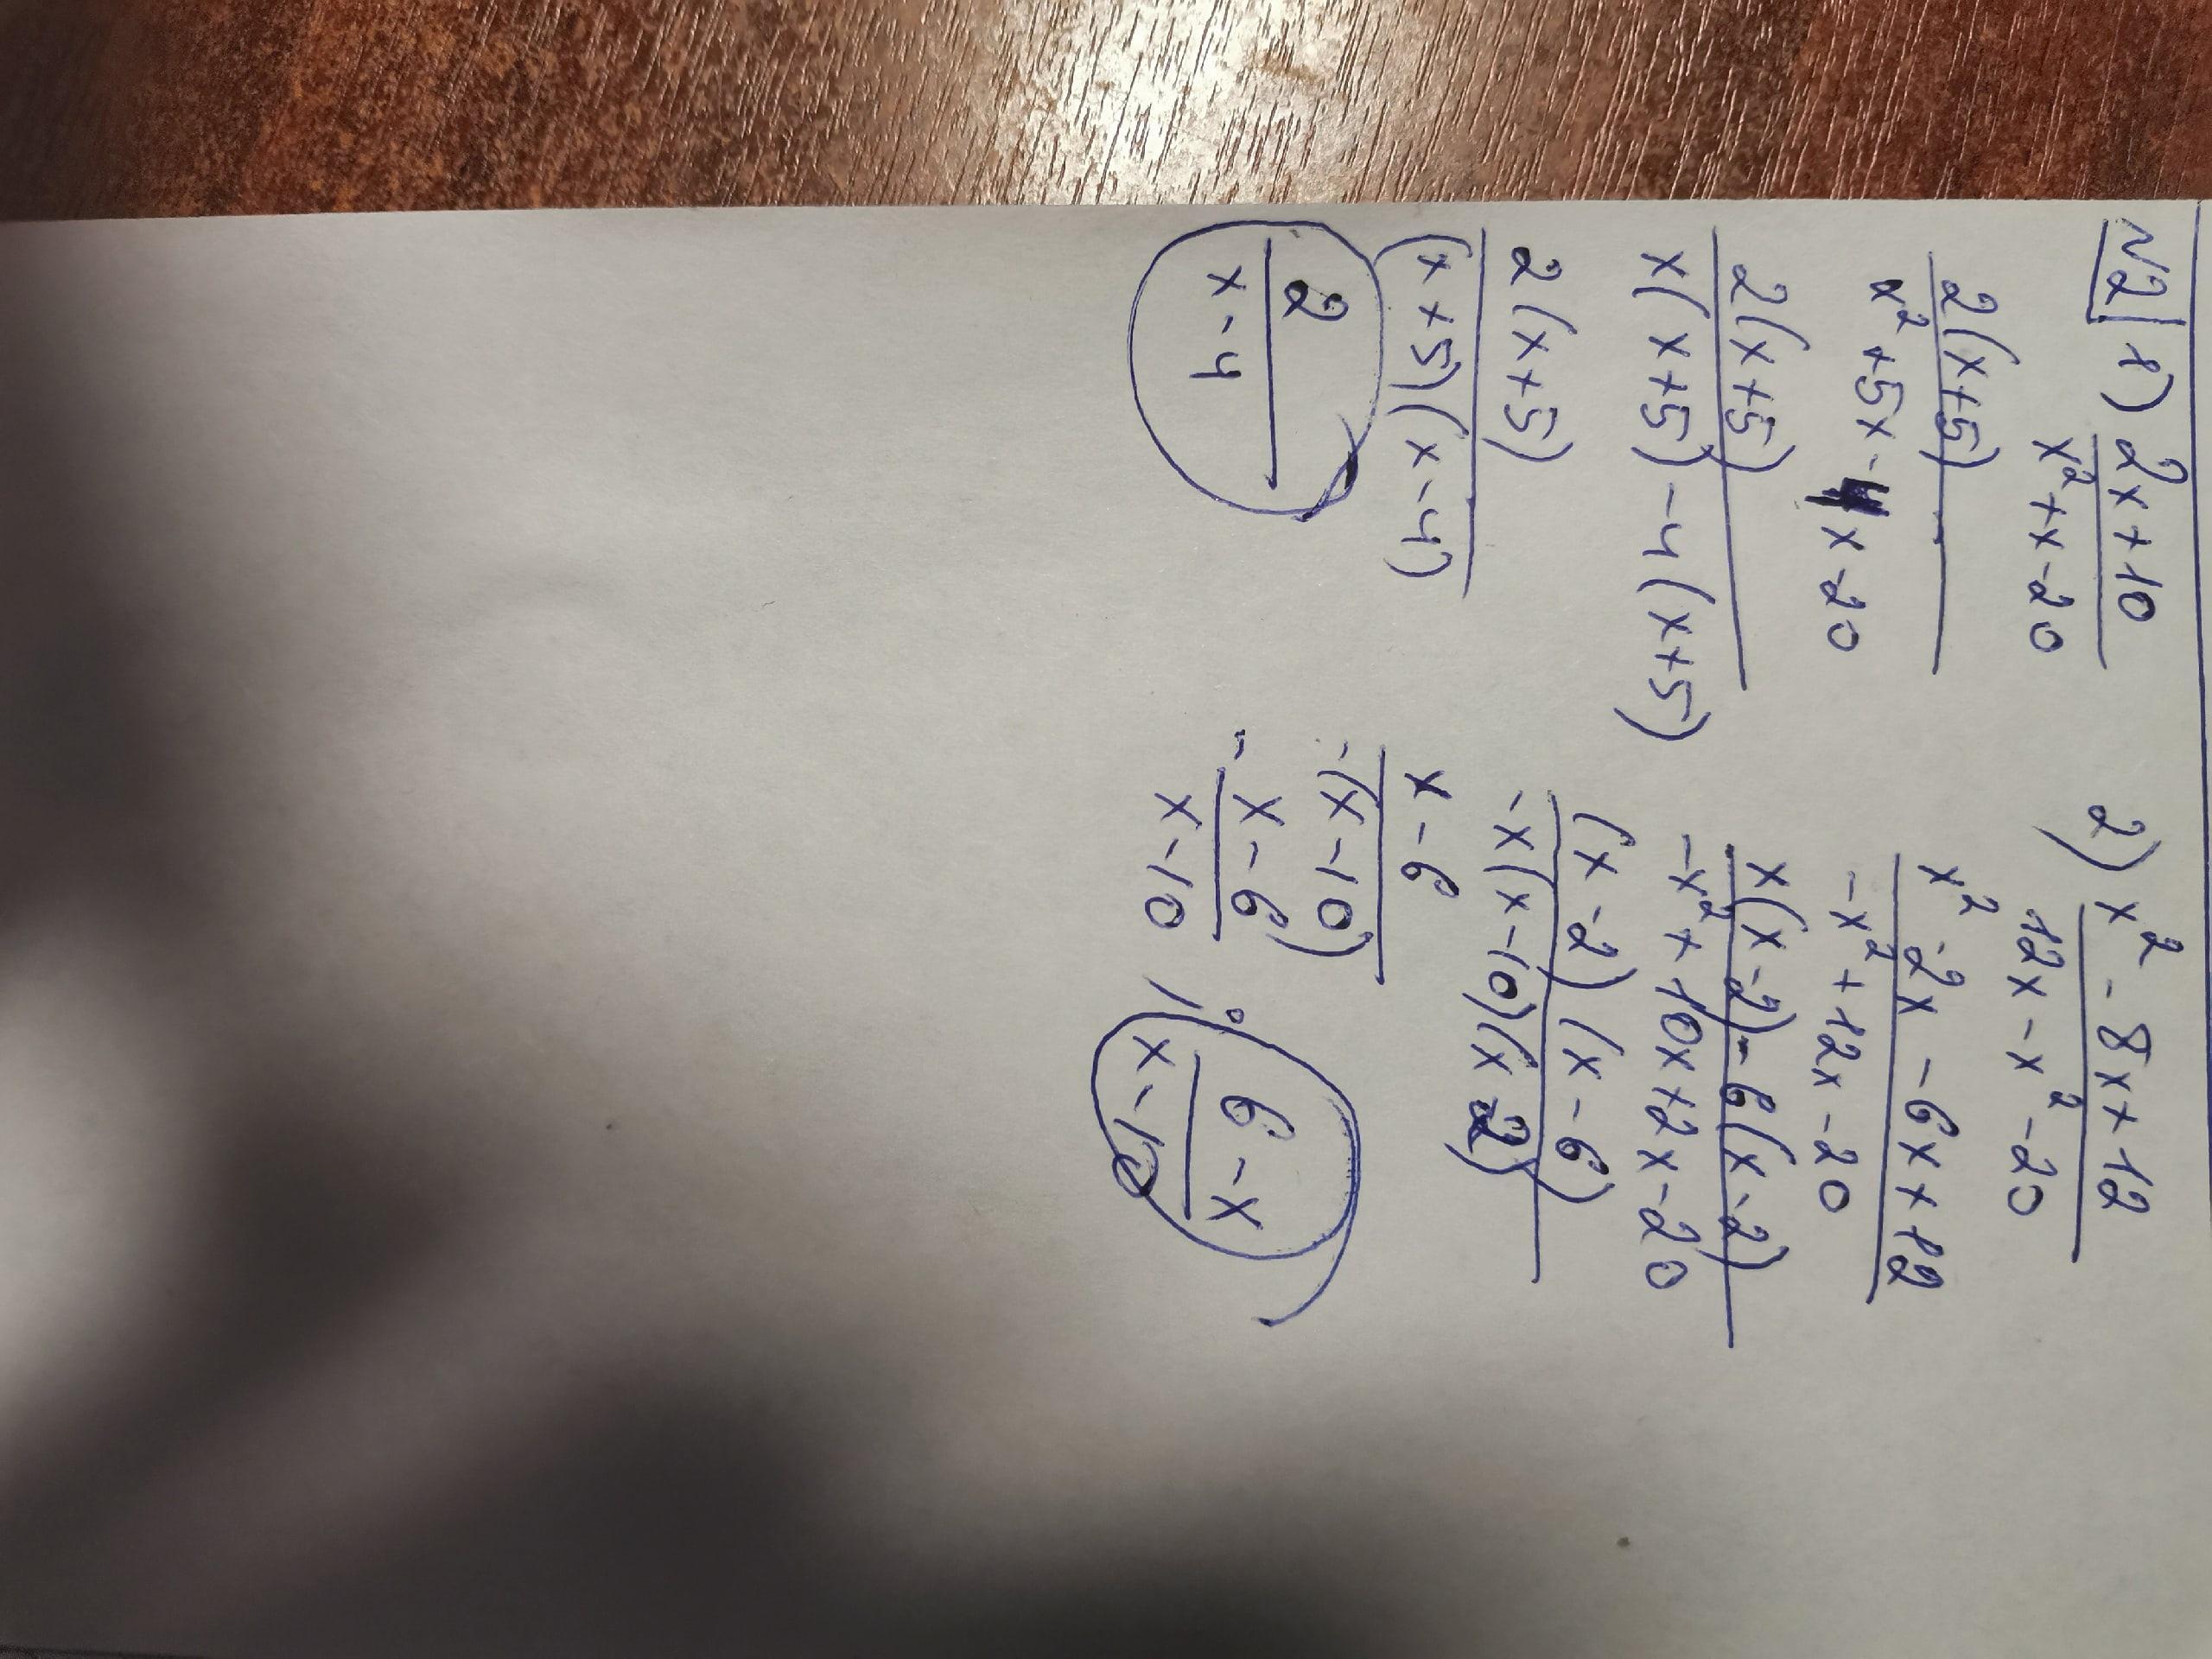 №2 1) 2x+10 / x²+x-20
2(x+5) / x²+5x-4x-20
2(x+5) / x(x+5)-4(x+5)
2(x+5) / (x+5)(x-4)
2 / x-4
2) x²-8x+12 / 12x-x²-20
x²-2x-6x+12 / -x²+12x-20
x(x-2)-6(x-2) / -x²+10x+2x-20
(x-2)(x-6) / -x(x-10)(x-2)
x-6 / -(x-10)
- x-6 / x-10 ; 6-x / x-10